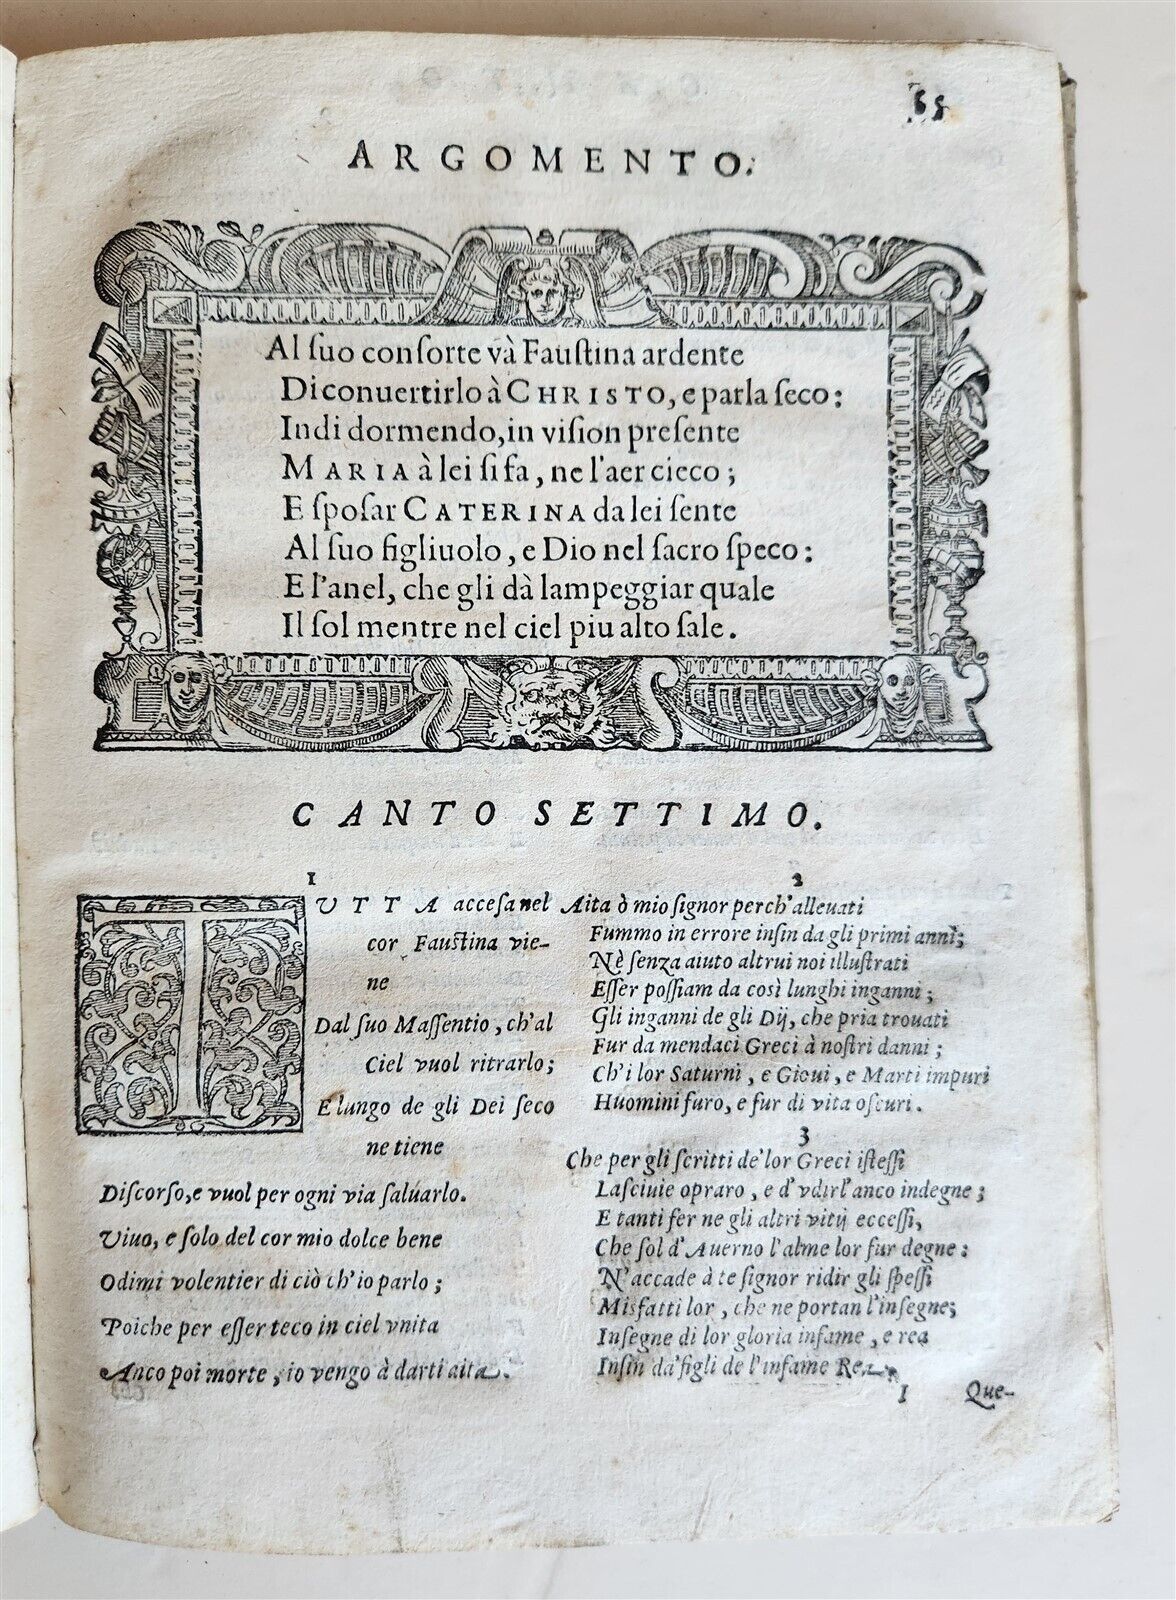 65
ARGOMENTO.
Al ſuo conſorte và Fauſtina ardente
Di conuertirlo à CHRISTO, e parla ſeco:
Indi dormendo, in viſion preſente
MARIA à lei ſi fa, ne l'aer cieco;
E ſpoſar CATERINA da lei ſente
Al ſuo figliuolo, e Dio nel ſacro ſpeco:
E l'anel, che gli dà lampeggiar quale
Il ſol mentre nel ciel piu alto ſale.
CANTO SETTIMO.
1
TUTTA acceſa nel
cor Fauſtina vie-
ne
Dal ſuo Maſſentio, ch'al
Ciel vuol ritrarlo;
E lungo de gli Dei ſeco
ne tiene
Diſcorſo, e vuol per ogni via ſaluarlo.
Viuo, e ſolo del cor mio dolce bene
Odimi volentier di ciò ch'io parlo;
Poiche per eſſer teco in ciel vnita
Anco poi morte, io vengo à darti aita.
2
Aita ò mio ſignor perch'alleuati
Fummo in errore inſin da gli primi anni;
Nè ſenza aiuto altrui noi illuſtrati
Eſſer poſſiam da così lunghi inganni;
Gli inganni de gli Dij, che pria trouati
Fur da mendaci Greci à noſtri danni;
Ch'i lor Saturni, e Gioui, e Marti impuri
Huomini furo, e fur di vita oſcuri.
3
Che per gli ſcritti de'lor Greci iſteſſi
Laſciuie opraro, e d'vdirl'anco indegne;
E tanti fer ne gli altri vitij ecceſſi,
Che ſol d'Auerno l'alme lor fur degne:
N'accade à te ſignor ridir gli ſpeſſi
Misfatti lor, che ne portan l'inſegne;
Inſegne di lor gloria infame, e rea
Inſin da'figli de l'infame Rea.
I
Que-